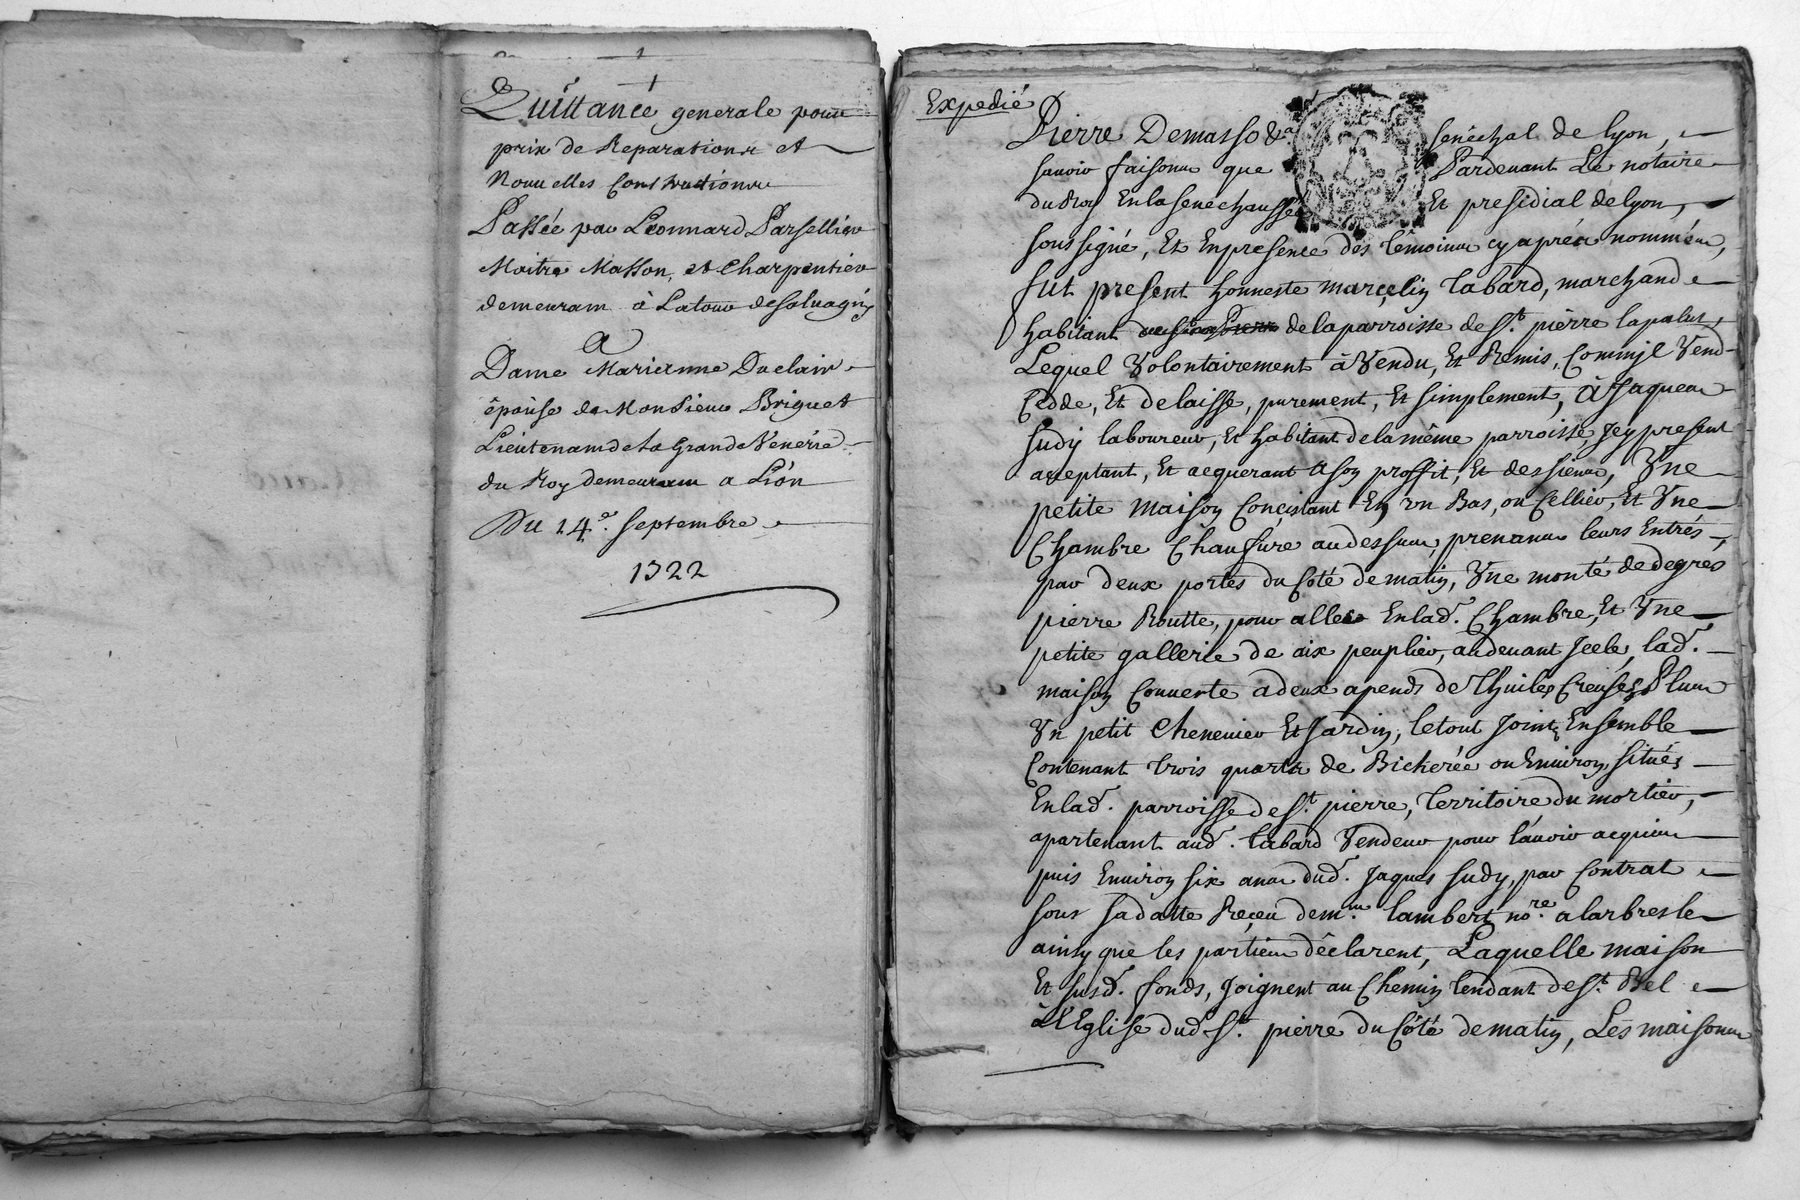 Quittance generale pour
prix de Reparations et
Nouuelles Constructions
Passée par Leonnard Parsellier
Maitre Masson, et Charpentier
demeuram à Latour de Saluagny
A
Dame Marianne Duclair
épouse de Monsieur Briguet
Lieutenam de la Grande Venérie
du Roy demeuram a Lion
Du 14e. Septembre
1722
Expedié
Pierre Demasso &a Senéchal de lyon,
sauoir faisons que Pardeuant Le notaire
du Roy En la Senechaussée Et presidial de lyon,
soussigné, Et En presence des témoins cy aprés nommés,
fut present honneste marcelin tabard, marchand
habitant de la parroisse de St. pièrre lapalus,
Lequel Volontairement à Vendu, Et Remis, Comm'jl Vend
Cedde, Et delaisse, purement, Et simplement, à Jaques
Sudy laboureur, Et habitant de la même parroisse, Jcy present
acceptant, Et acquerant a son proffit, Et des siens, Vne
petite maison Concistant En vn Bas, ou Cellier, Et Vne
Chambre Chaufure au dessus, prenans leurs Entrés,
par deux portes du Coté de matin, Vne monté de degrés
pierre Routte, pour aller En lad. Chambre, Et Vne
petite gallerie de aix peuplier, au deuant Jcele, lad.
maison Couuerte a deux apends de Thuiles Creuses, Plus
Vn petit Cheneuier Et Jardin, le tout Joint Ensemble
Contenant trois quarts de Bicherée ou Enuiron, situés
En lad. parroisse de St. pierre, territoire du mortier,
apartenant aud. tabard Vendeur pour l'auoir acquis
puis Enuiron six ans dud. Jaques Sudy, par Contrat
sous sa datte Reçeu de me. Lambert nore. a larbresle
ainsy que les parties déclarent, Laquelle maison
Et susd. fonds, Joignent au Chemin tendant de St. Bel
à L'Eglise dud. St. pièrre du Côté de matin, Les maisons